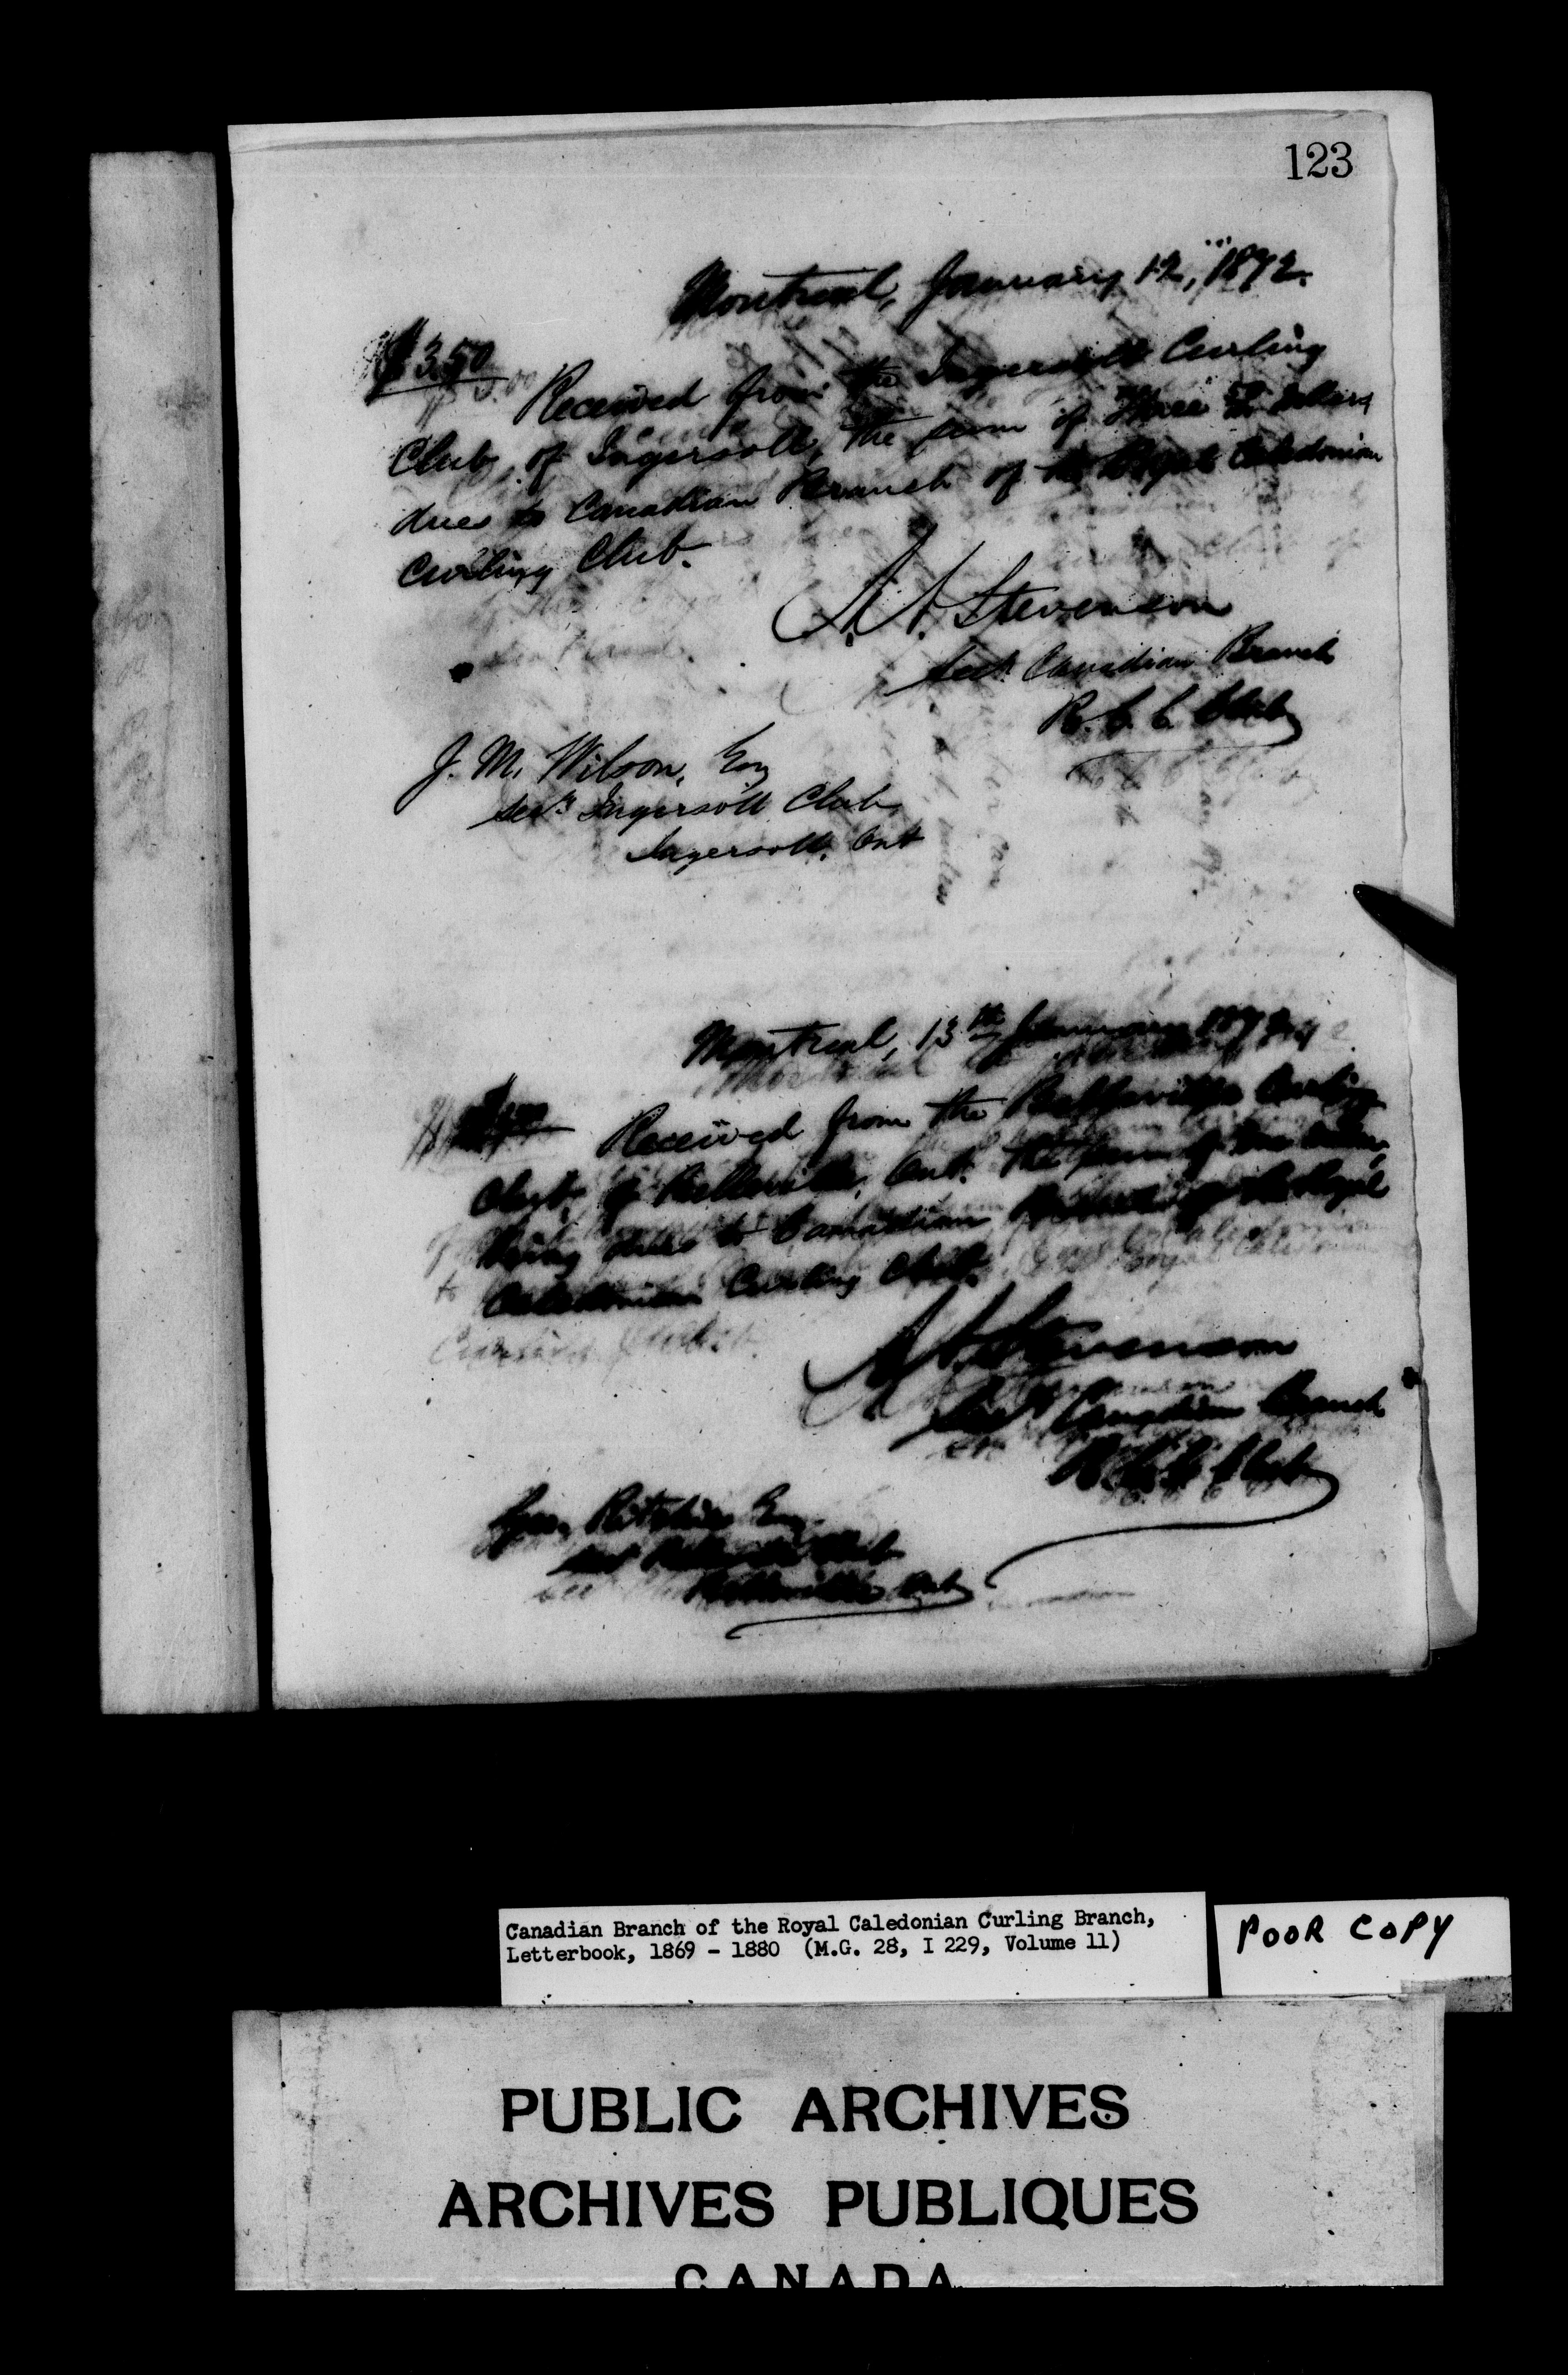 123
Montreal, January 12, 1872.
$3.50
Received from the Ingersoll Curling
Club, of Ingersoll, the sum of Three dollars
dues to Canadian Branch of the Royal Caledonian
Curling Club.
A. A. Stevenson
Secy. Canadian Branch
R. C. C. Club
J. M. Wilson, Esq
Secy. Ingersoll Club
Ingersoll, Ont
Montreal, 13th January 1872
Received from the Belleville Curling
Club, of Belleville, Ont. the sum of
being dues to Canadian Branch of the Royal
Caledonian Curling Club.
A. A. Stevenson
Secy Canadian Branch
R. C. C. Club
Ritchie Esq
Secy Belleville Club
Belleville Ont
Canadian Branch of the Royal Caledonian Curling Branch,
Letterbook, 1869 - 1880 (M.G. 28, I 229, Volume 11)
POOR COPY
PUBLIC ARCHIVES
ARCHIVES PUBLIQUES
CANADA